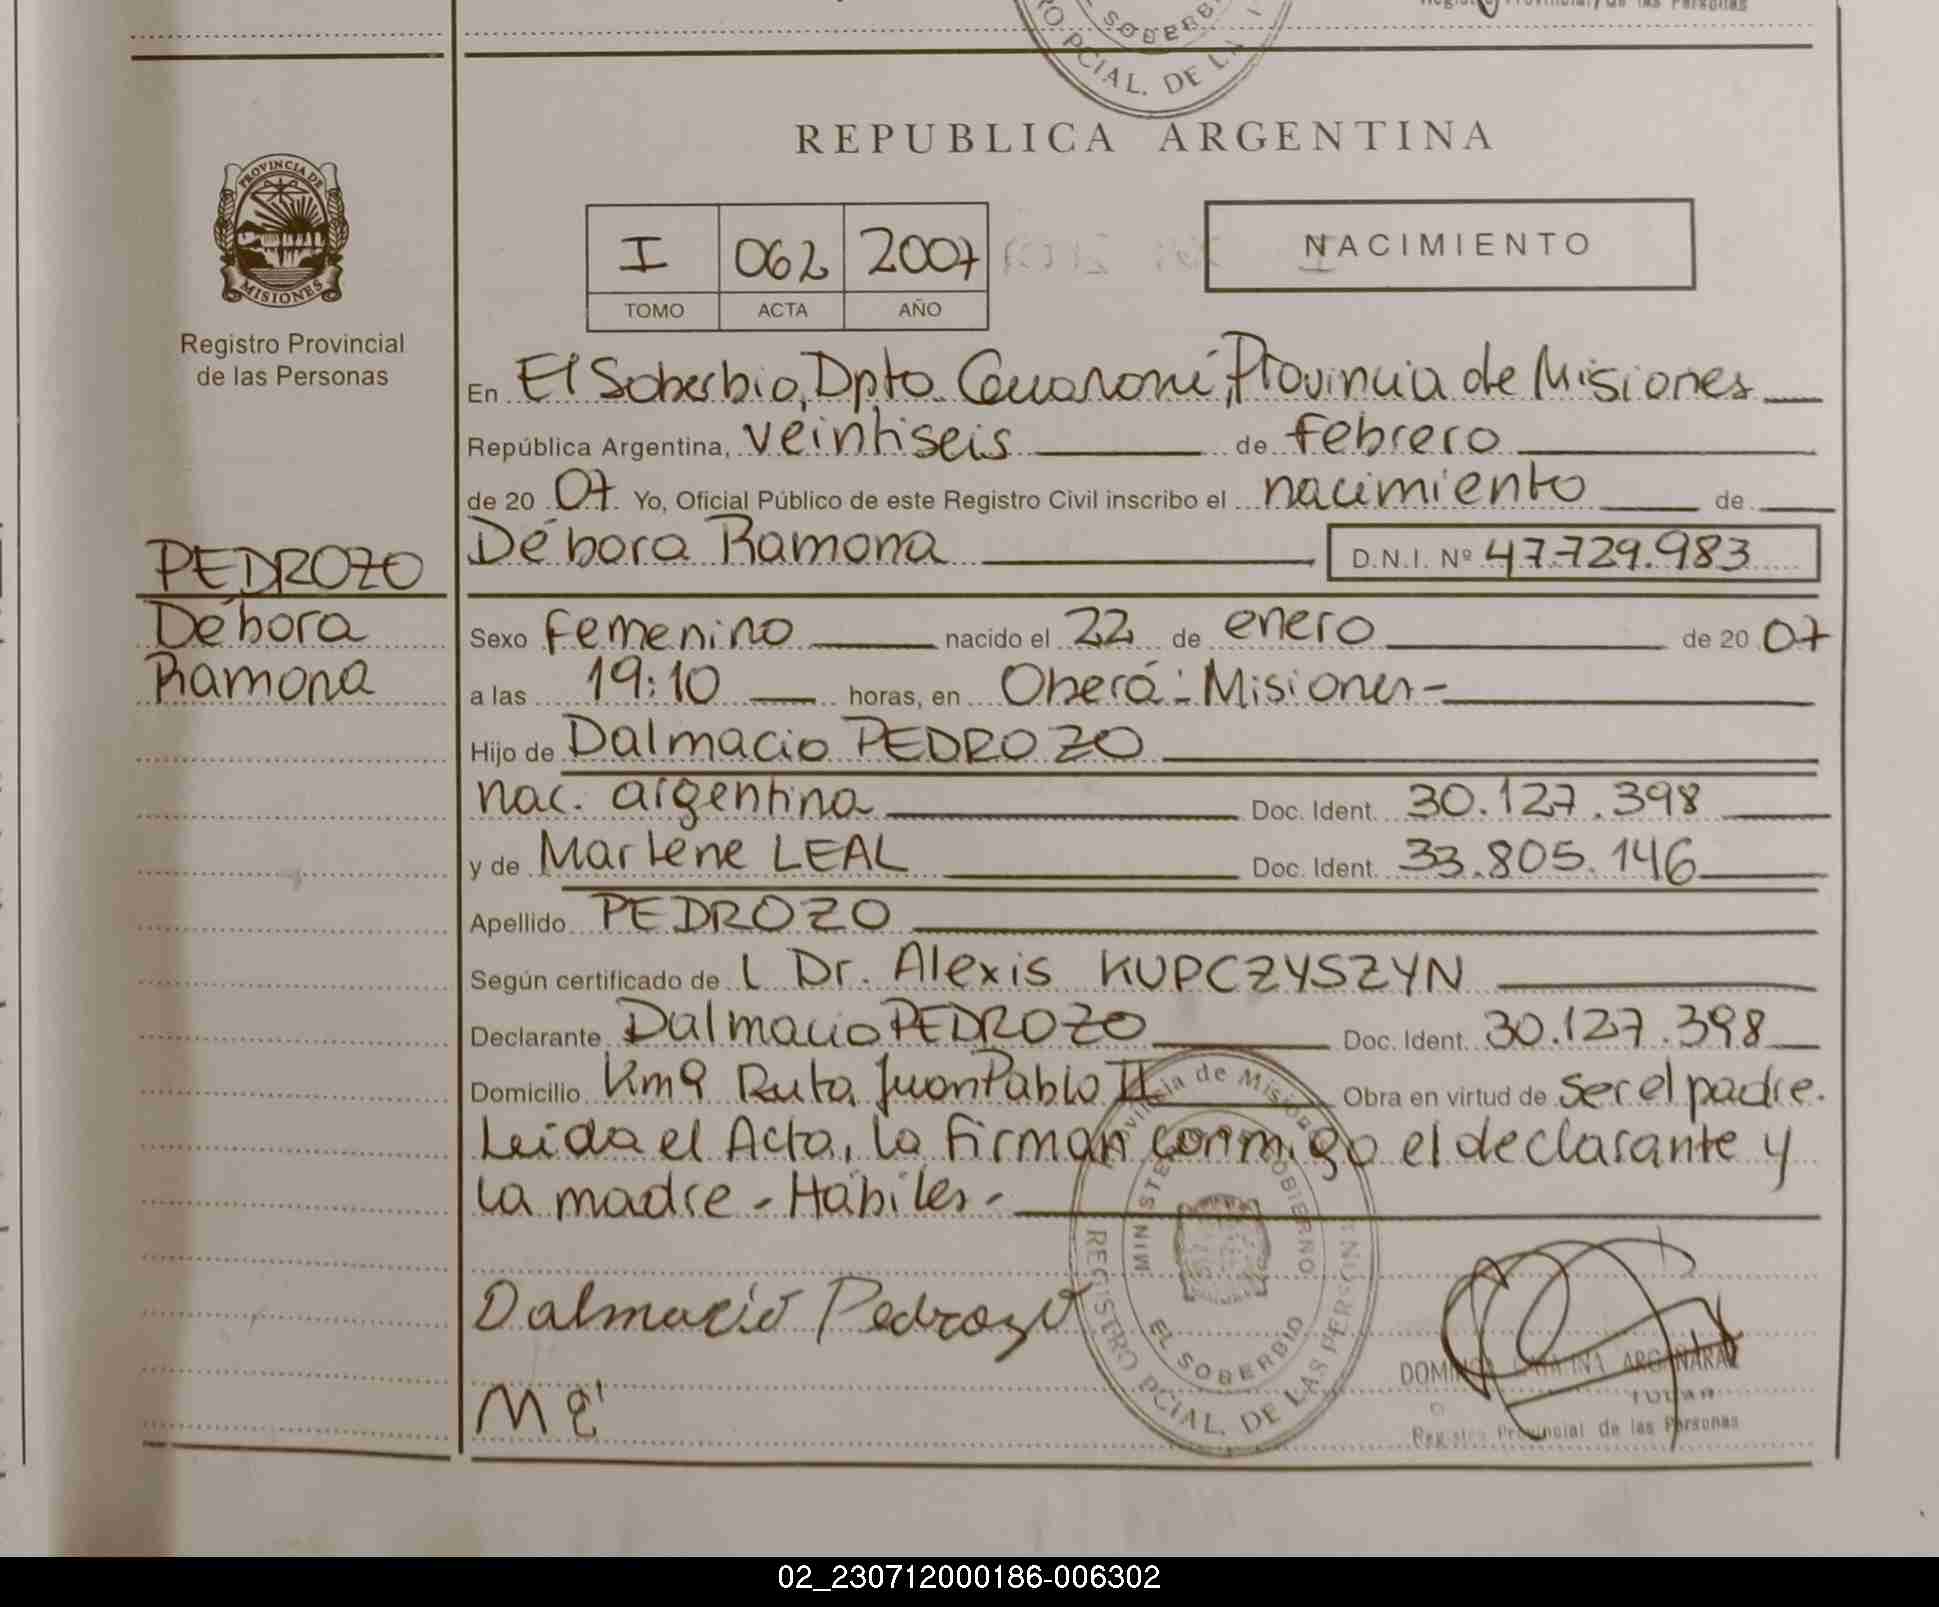 Registro Provincial de las Personas
SOBERBI
RO PCIAL. DE LA
REPUBLICA ARGENTINA
PROVINCIA DE
MISIONES
Registro Provincial
de las Personas
I 062 2007
TOMO ACTA AÑO
NACIMIENTO
En El Soberbio, Dpto. Guaraní, Provincia de Misiones
República Argentina, veintiseis de febrero
de 20 07. Yo, Oficial Público de este Registro Civil inscribo el nacimiento de
PEDROZO
Débora
Ramona
Débora Ramona D.N.I. Nº 47.729.983
Sexo femenino nacido el 22 de enero de 20 07
a las 19:10 horas, en Oberá - Misiones -
Hijo de Dalmacio PEDROZO
nac. argentina Doc. Ident. 30.127.398
y de Marlene LEAL Doc. Ident. 33.805.146
Apellido PEDROZO
Según certificado de l Dr. Alexis KUPCZYSZYN
Declarante Dalmacio PEDROZO Doc. Ident. 30.127.398
Domicilio Km 9 Ruta Juan Pablo II Obra en virtud de ser el padre.
Leída el Acta, la firman conmigo el declarante y
la madre - Hábiles -
Provincia de Misiones
MINISTE OBIERNO
EL SOBERBIO
REGISTRO PCIAL. DE LAS PERSONAS
Dalmacio Pedrozo
DOMI ARGAÑARAZ
Registro Provincial de las Personas
02_230712000186-006302